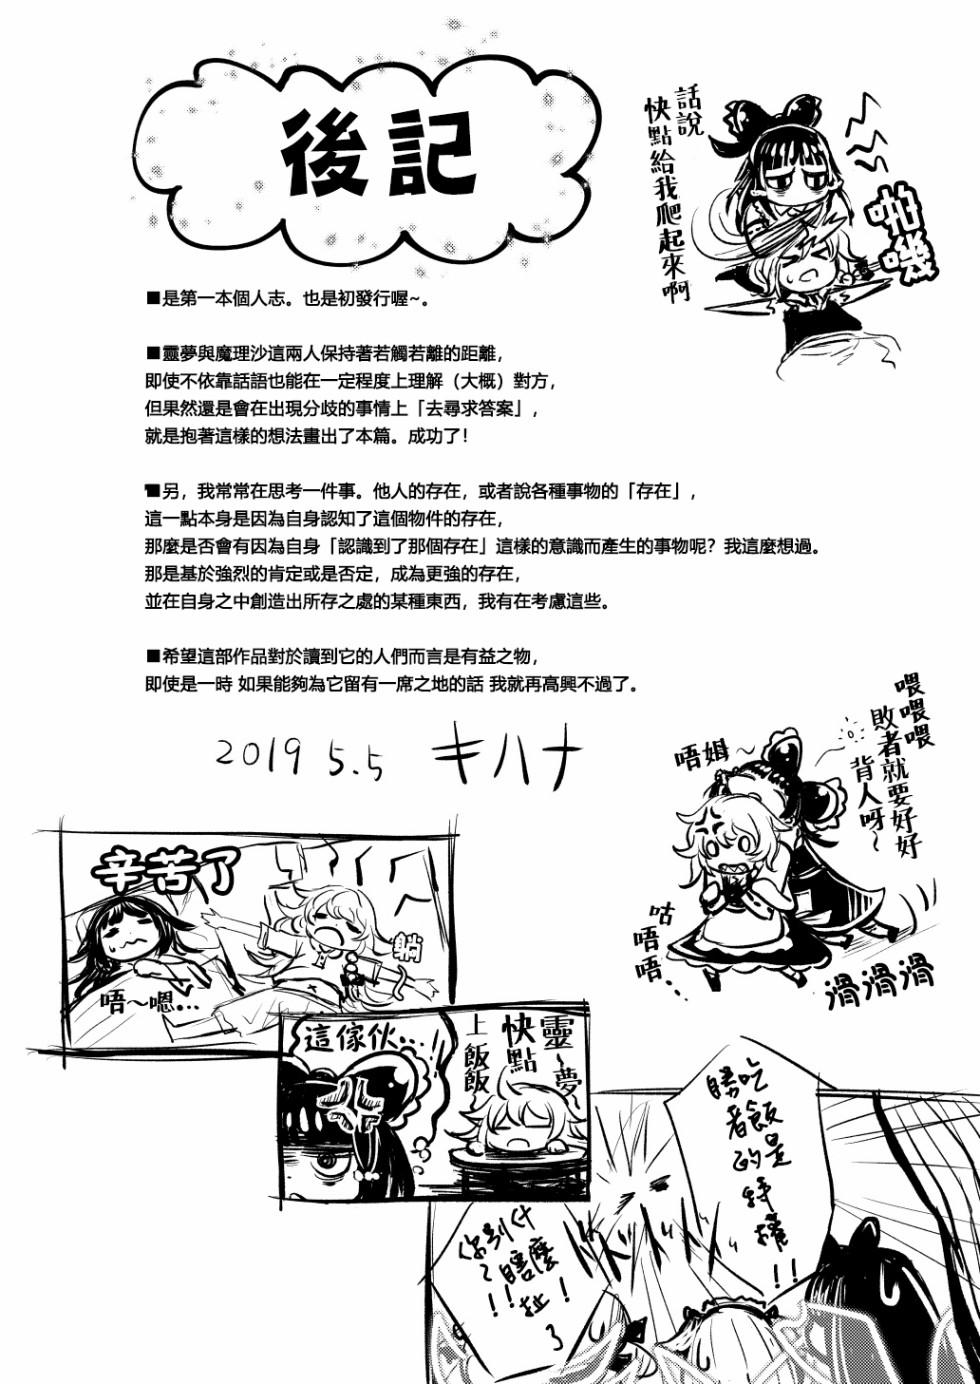 後記
話說
快點給我爬起來啊
啪嘰
■是第一本個人志。也是初發行喔~。
■靈夢與魔理沙這兩人保持著若觸若離的距離，
即使不依靠話語也能在一定程度上理解（大概）對方，
但果然還是會在出現分歧的事情上「去尋求答案」，
就是抱著這樣的想法畫出了本篇。成功了！
■另，我常常在思考一件事。他人的存在，或者說各種事物的「存在」，
這一點本身是因為自身認知了這個物件的存在，
那麼是否會有因為自身「認識到了那個存在」這樣的意識而產生的事物呢？我這麼想過。
那是基於強烈的肯定或是否定，成為更強的存在，
並在自身之中創造出所存之處的某種東西，我有在考慮這些。
■希望這部作品對於讀到它的人們而言是有益之物，
即使是一時 如果能夠為它留有一席之地的話 我就再高興不過了。
2019 5.5 キハナ
喂喂喂
敗者就要好好
背人呀~
唔姆~
咕
唔
唔…
滑滑滑
辛苦了
躺
唔~嗯…
靈~夢
快點
上飯飯~
這傢伙…!!
吃飯是
勝者的
特權!!
什麼!
別瞎扯了
你!!